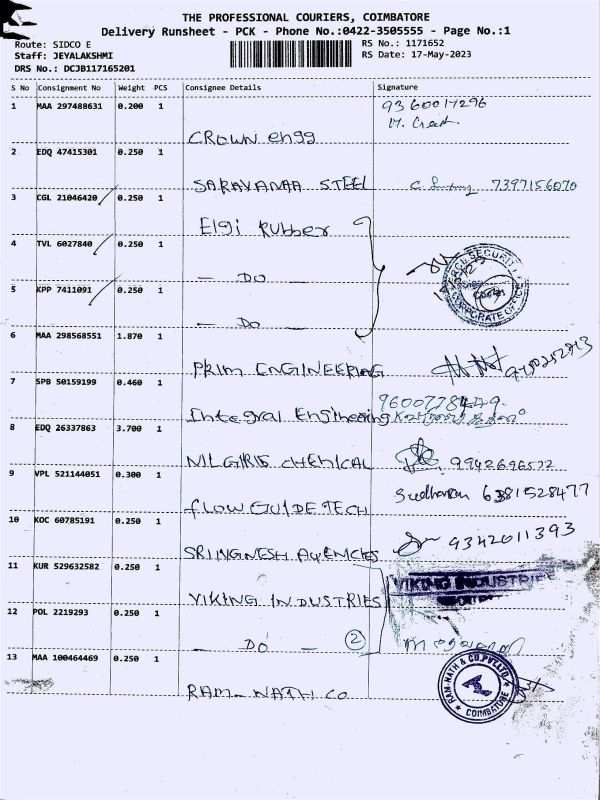 THE PROFESSIONAL COURIERS, COIMBATORE
Delivery Runsheet - PCK - Phone No.:0422-3505555 - Page No.:1
Route: SIDCO E
RS No.: 1171652
Staff: JEYALAKSHMI
RS Date: 17-May-2023
DRS No.: DCJB117165201
S No Consignment No Weight PCS Consignee Details Signature
1 MAA 297488631 0.200 1 9360017296
CROWN engg
2 EDQ 47415301 0.250 1
SARAVANAA STEEL 7397156070
3 CGL 21046420 0.250 1
Elgi Rubber
4 TVL 6027840 0.250 1
— DO
5 KPP 7411091 0.250 1
— DO —
CORPORATE OFFICE
6 MAA 298568551 1.870 1
PRIM ENGINEERING
7 SPB 50159199 0.460 1
Integral Engineering
8 EDQ 26337863 3.700 1
NILGIRIS CHEMICAL 9942696522
9 VPL 521144051 0.300 1
FLOW GUIDE TECH Sudharsan 6381528477
10 KOC 60785191 0.250 1
SRI INGNESH AGENCIES 9342011393
11 KUR 529632582 0.250 1
VIKING INDUSTRIES
VIKING INDUSTRIES
12 POL 2219293 0.250 1
— DO — 2
13 MAA 100464469 0.250 1
RAM-NATH CO
RAM-NATH & CO.PVT.LTD
COIMBATORE